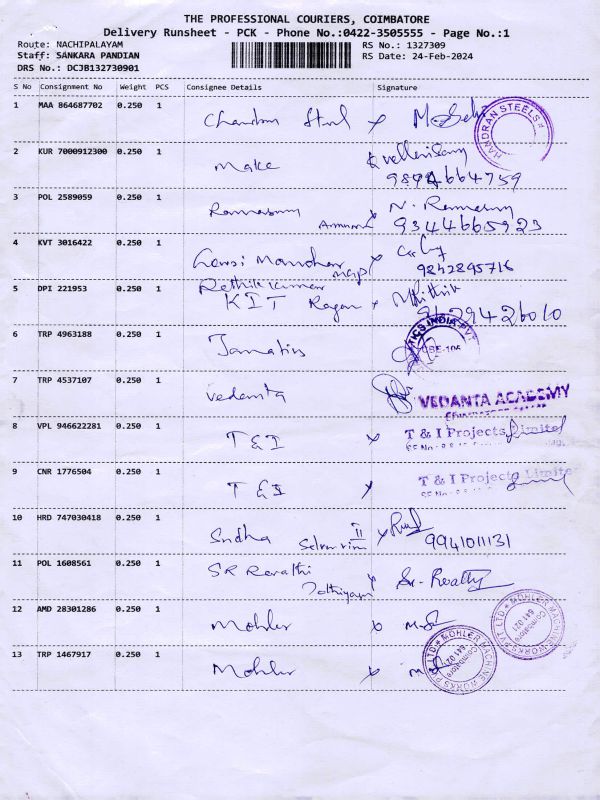 THE PROFESSIONAL COURIERS, COIMBATORE
Delivery Runsheet - PCK - Phone No.:0422-3505555 - Page No.:1
Route: NACHIPALAYAM RS No.: 1327309
Staff: SANKARA PANDIAN RS Date: 24-Feb-2024
DRS No.: DCJB132730901
S No Consignment No Weight PCS Consignee Details Signature
1 MAA 864687702 0.250 1 Chandran Steel x
HANDRAN STEELS
2 KUR 7000912300 0.250 1 Make
3 POL 2589059 0.250 1 Ramasamy x N. Ramasamy
9344665923
4 KVT 3016422 0.250 1 Manohar
9842895716
5 DPI 221953 0.250 1 Rethik Kumar
KIT x
6 TRP 4963188 0.250 1
TICS INDIA PVT
7 TRP 4537107 0.250 1 Vedanta
VEDANTA ACADEMY
8 VPL 946622281 0.250 1 T & I x T & I Projects Limited
9 CNR 1776504 0.250 1 T & I x T & I Projects Limite
10 HRD 747030418 0.250 1 Sudha II x
9941011131
11 POL 1608561 0.250 1 SR Revathi x
12 AMD 28301286 0.250 1 Mohler x
MOHLER MACHINE WORKS PVT LTD
Coimbatore
641 021
13 TRP 1467917 0.250 1 Mohler x
MOHLER MACHINE WORKS PVT LTD
Coimbatore
641 021